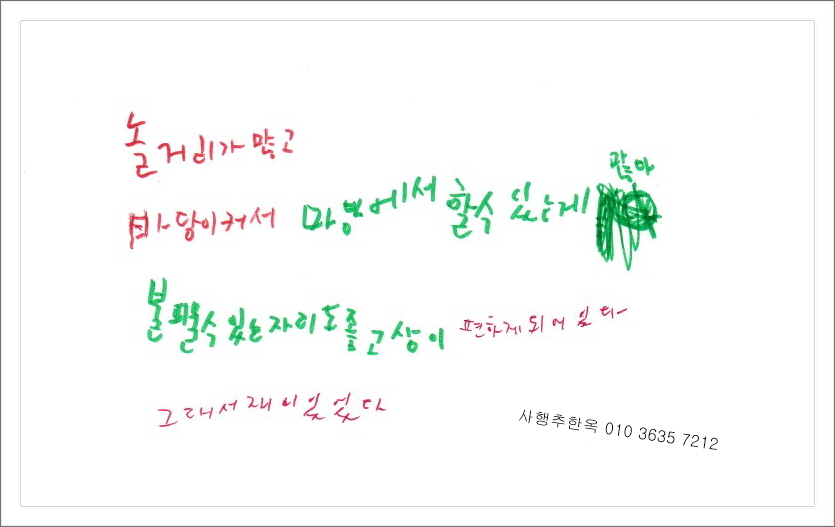 놀거리가 많고
마당이커서 마당에서 할수 있는게 많아
불피울수 있는자리도졸고상이 편하게되어있다
그대서재미있었다
사행추한옥 010 3635 7212